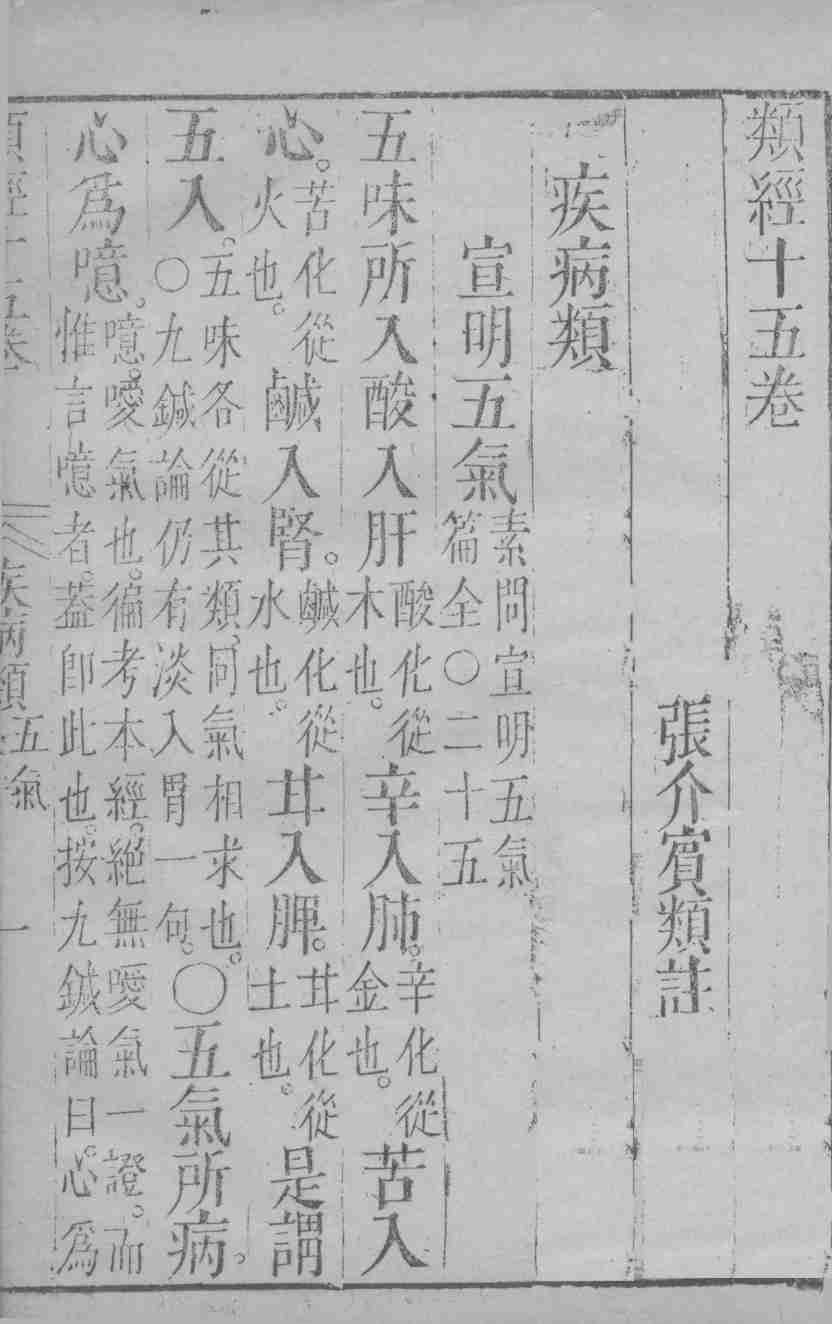 類經十五卷
張介賓類註
疾病類
宣明五氣素問宣明五氣篇全○二十五
五味所入酸入肝酸化從木也。辛入肺。辛化從金也。苦入
心。苦化從火也。鹹入腎。鹹化從水也。甘入脾。甘化從土也。是謂
五入。五味各從其類。同氣相求也。○九鍼論仍有淡入胃一句。○五氣所病。
心爲噫。噫。噯氣也。徧考本經。絕無噯氣一證。而惟言噫者。葢卽此也。按九鍼論曰。心爲
類經十五卷 疾病類 五氣 一